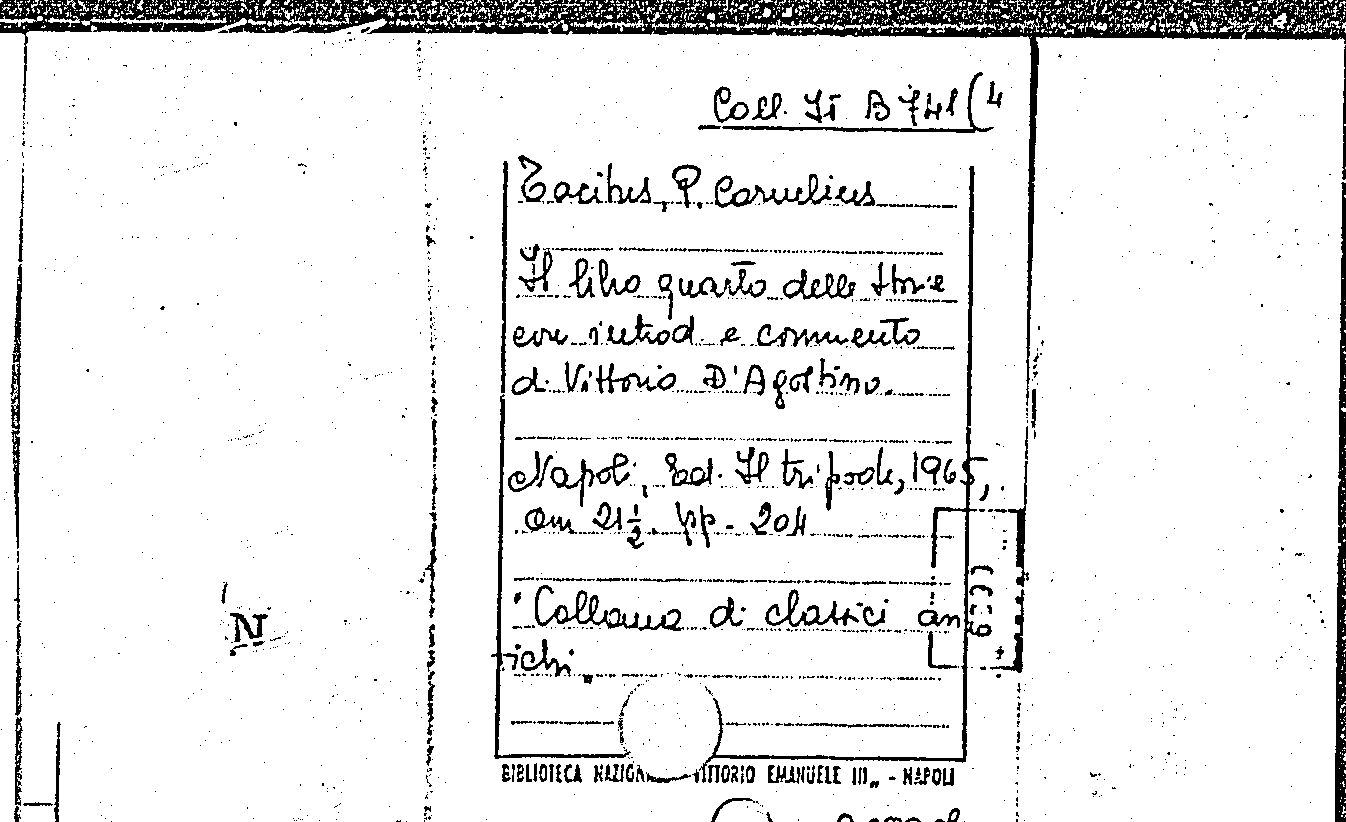 Coll. It B 741(4
Tacitus, P. Cornelius
Il libro quarto delle storie
con introd e commento
di Vittorio D'Agostino.
Napoli, Ed. Il tripode, 1965,
cm 21½. pp. 204
"Collana di classici an
tichi"
N
BIBLIOTECA NAZION VITTORIO EMANUELE III„ - NAPOLI